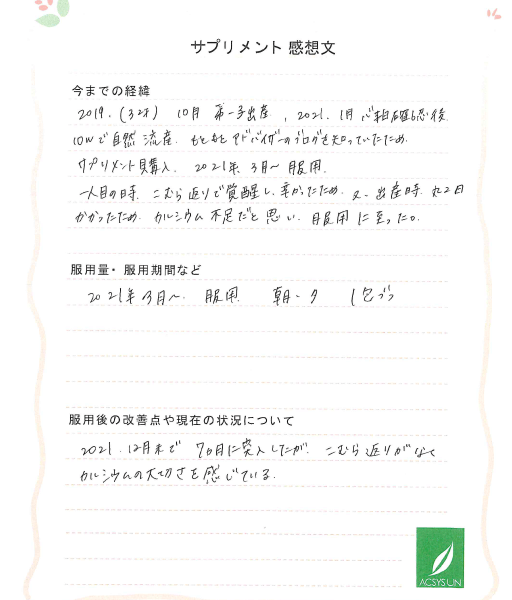 サプリメント 感想文
今までの経緯
2019.(32才) 10月 第一子出産 , 2021. 1月 心拍確認後
10wで自然流産. もともとアドバイザーのブログを知っていたため.
サプリメント購入. 2021年 3月〜 服用.
一人目の時. こむら返りで覚醒し. 辛かったため. 又. 出産時. 丸2日
かかったため. カルシウム不足だと思い. 服用に至った。
服用量・服用期間など
2021年3月〜. 服用. 朝・夕 1包づつ
服用後の改善点や現在の状況について
2021. 12月末で 7ヵ月に突入したが. こむら返りがなく
カルシウムの大切さを感じている.
ACSYSUN